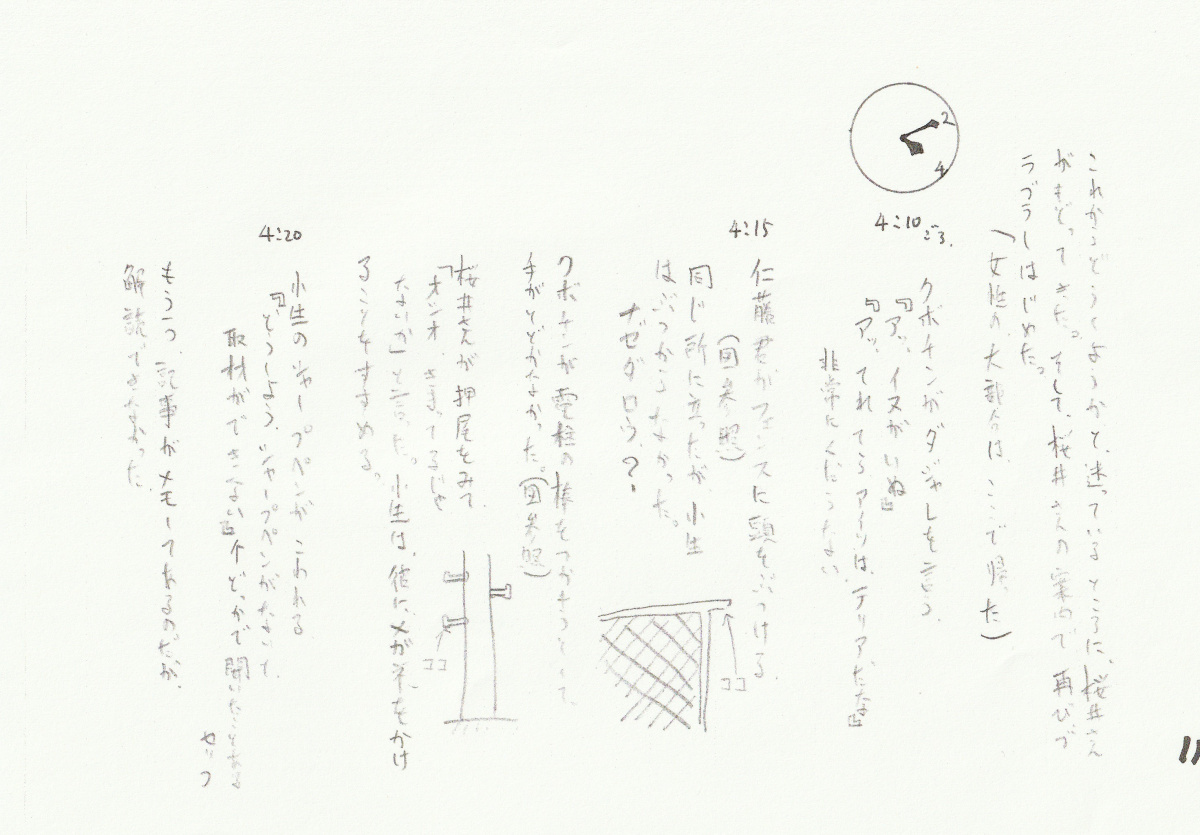 これからどうしようかと、迷っているところに、桜井さん
がもどってきた。そして、桜井さんの案内で再びブ
ラブラしはじめた。
(女性の大部分は、ここで帰った)
2
4
4:10ごろ.
クボチンがダジャレを言う。
『アッ、イヌがいぬ』
『アッ、てれてるアイツは、テリアだなぁ』
非常にくだらない。
4:15
仁藤君がフェンスに頭をぶつける。
(図参照)
同じ所に立ったが、小生
はぶつからなかった。
ナゼダロウ、?
ココ
クボチンが電柱の棒をつかもうとして、
手がとどかなかった。(図参照)
ココ
桜井さんが押尾をみて、
「オジンオ、きまってるじゃ
ないか」と言った。小生は、彼に、メガネをかけ
ることをすすめる。
4:20
小生のシャープペンがこわれる
『どうしよう、シャープペンがないと、
取材ができない』←どっかで聞いたことある
セリフ
もう一つ、記事がメモしてあるのだが、
解読できなかった。
11